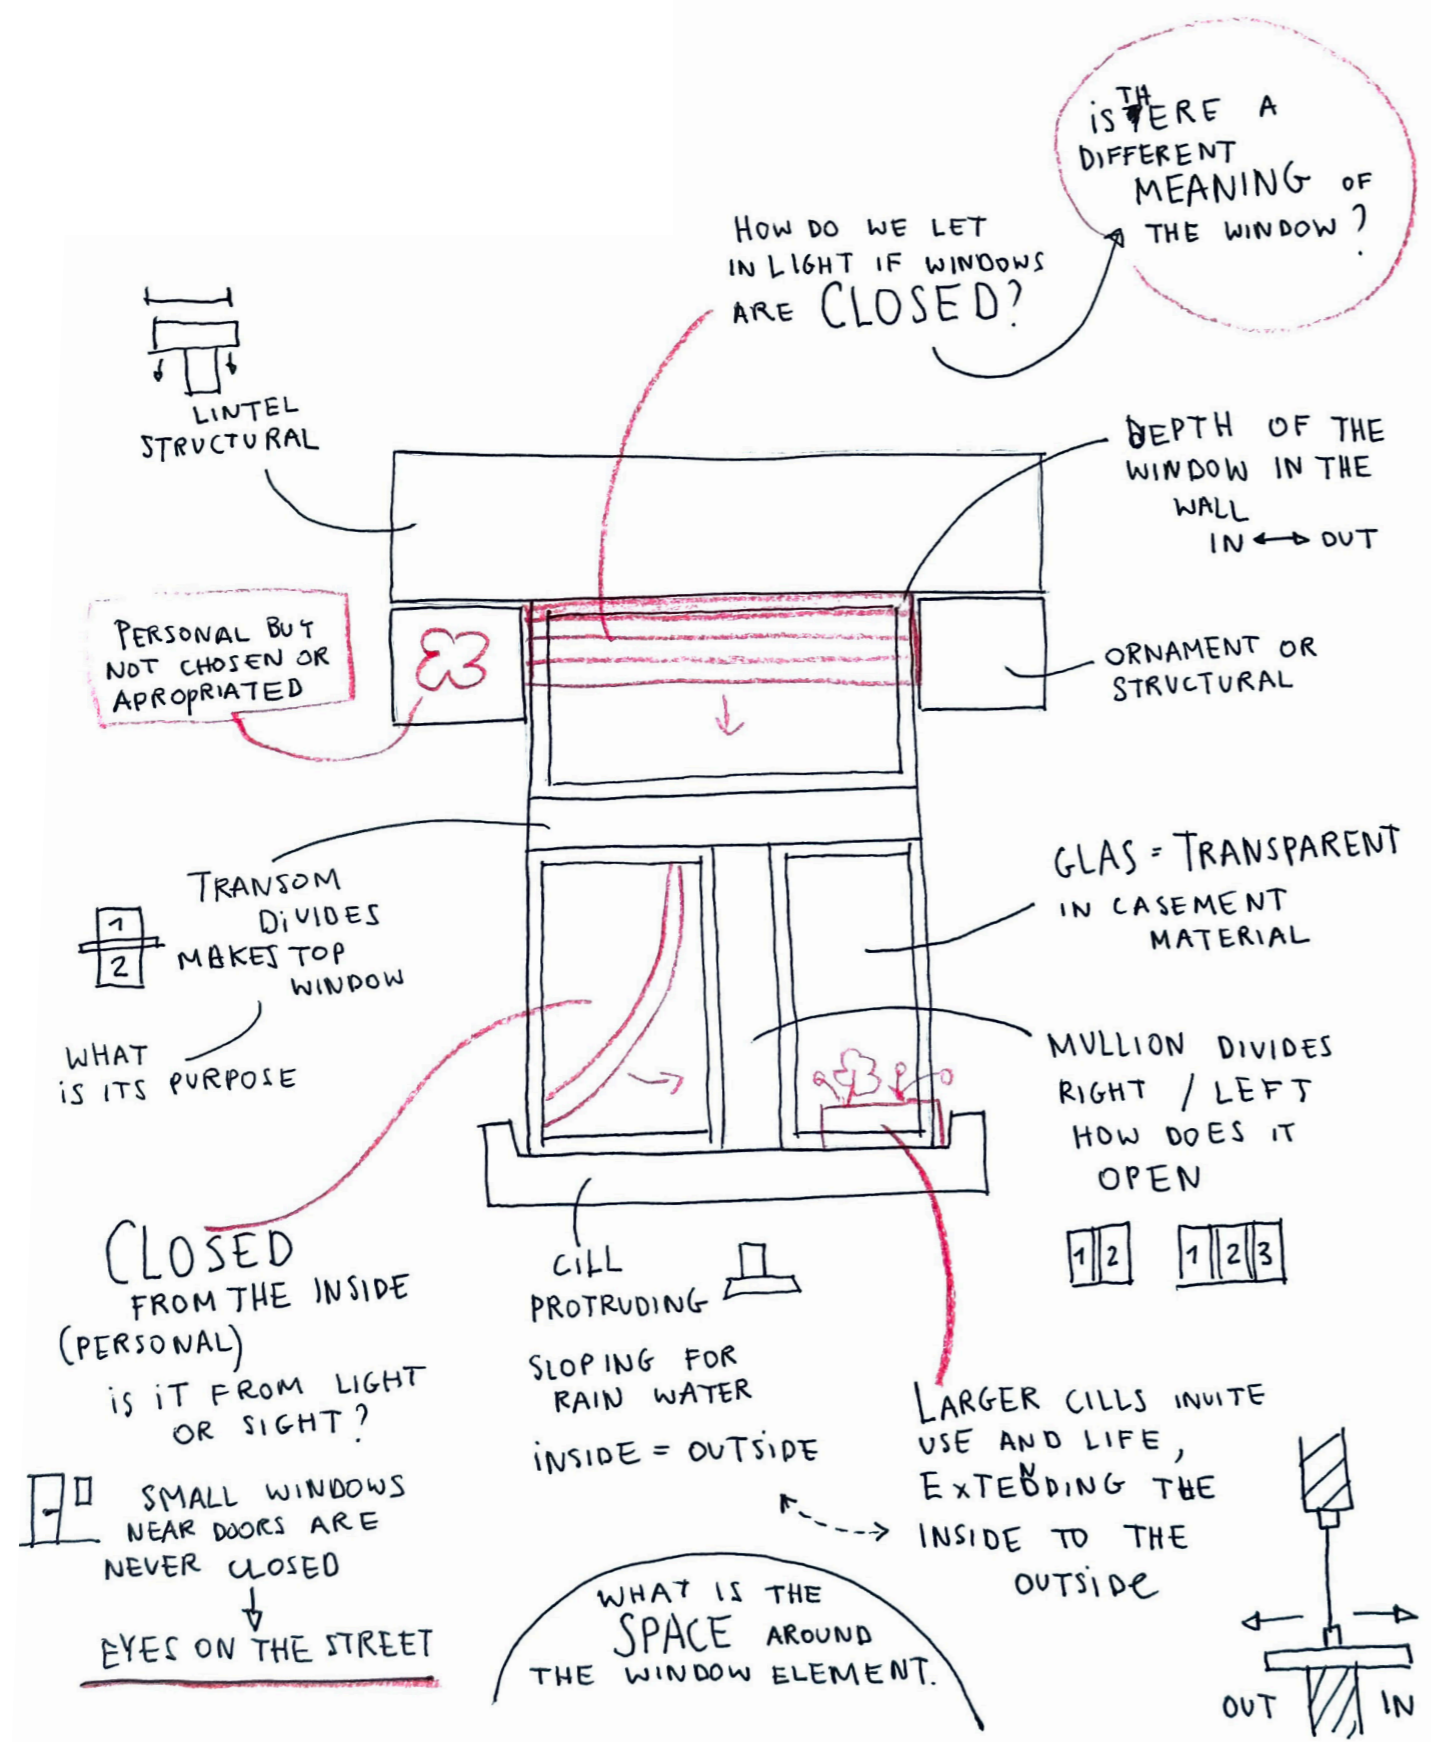 iS THERE A
DIFFERENT
MEANING OF
THE WINDOW?
HOW DO WE LET
IN LIGHT IF WINDOWS
ARE CLOSED?
LINTEL
STRUCTURAL
DEPTH OF THE
WINDOW IN THE
WALL
IN ↔ OUT
PERSONAL BUT
NOT CHOSEN OR
APROPRIATED
ORNAMENT OR
STRUCTURAL
TRANSOM
DiVIDES
MAKES TOP
WINDOW
1
2
WHAT
iS ITS PURPOSE
GLAS = TRANSPARENT
IN CASEMENT
MATERIAL
MULLION DIVIDES
RIGHT / LEFT
HOW DOES IT
OPEN
1 2
1 2 3
CLOSED
FROM THE INSIDE
(PERSONAL)
iS iT FROM LIGHT
OR SIGHT?
SMALL WINDOWS
NEAR DOORS ARE
NEVER CLOSED
EYES ON THE STREET
CiLL
PROTRUDING
SLOPING FOR
RAIN WATER
iNSIDE = OUTSiDE
LARGER CILLS INVITE
USE AND LIFE,
EXTENDING THE
INSIDE TO THE
OUTSiDe
WHAT IS THE
SPACE AROUND
THE WINDOW ELEMENT.
OUT IN